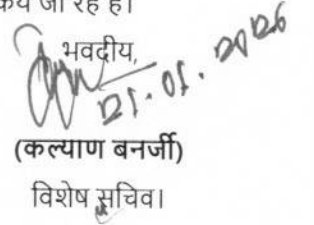 किये जा रहे हैं।
भवदीय,
21.01.2026
(कल्याण बनर्जी)
विशेष सचिव।